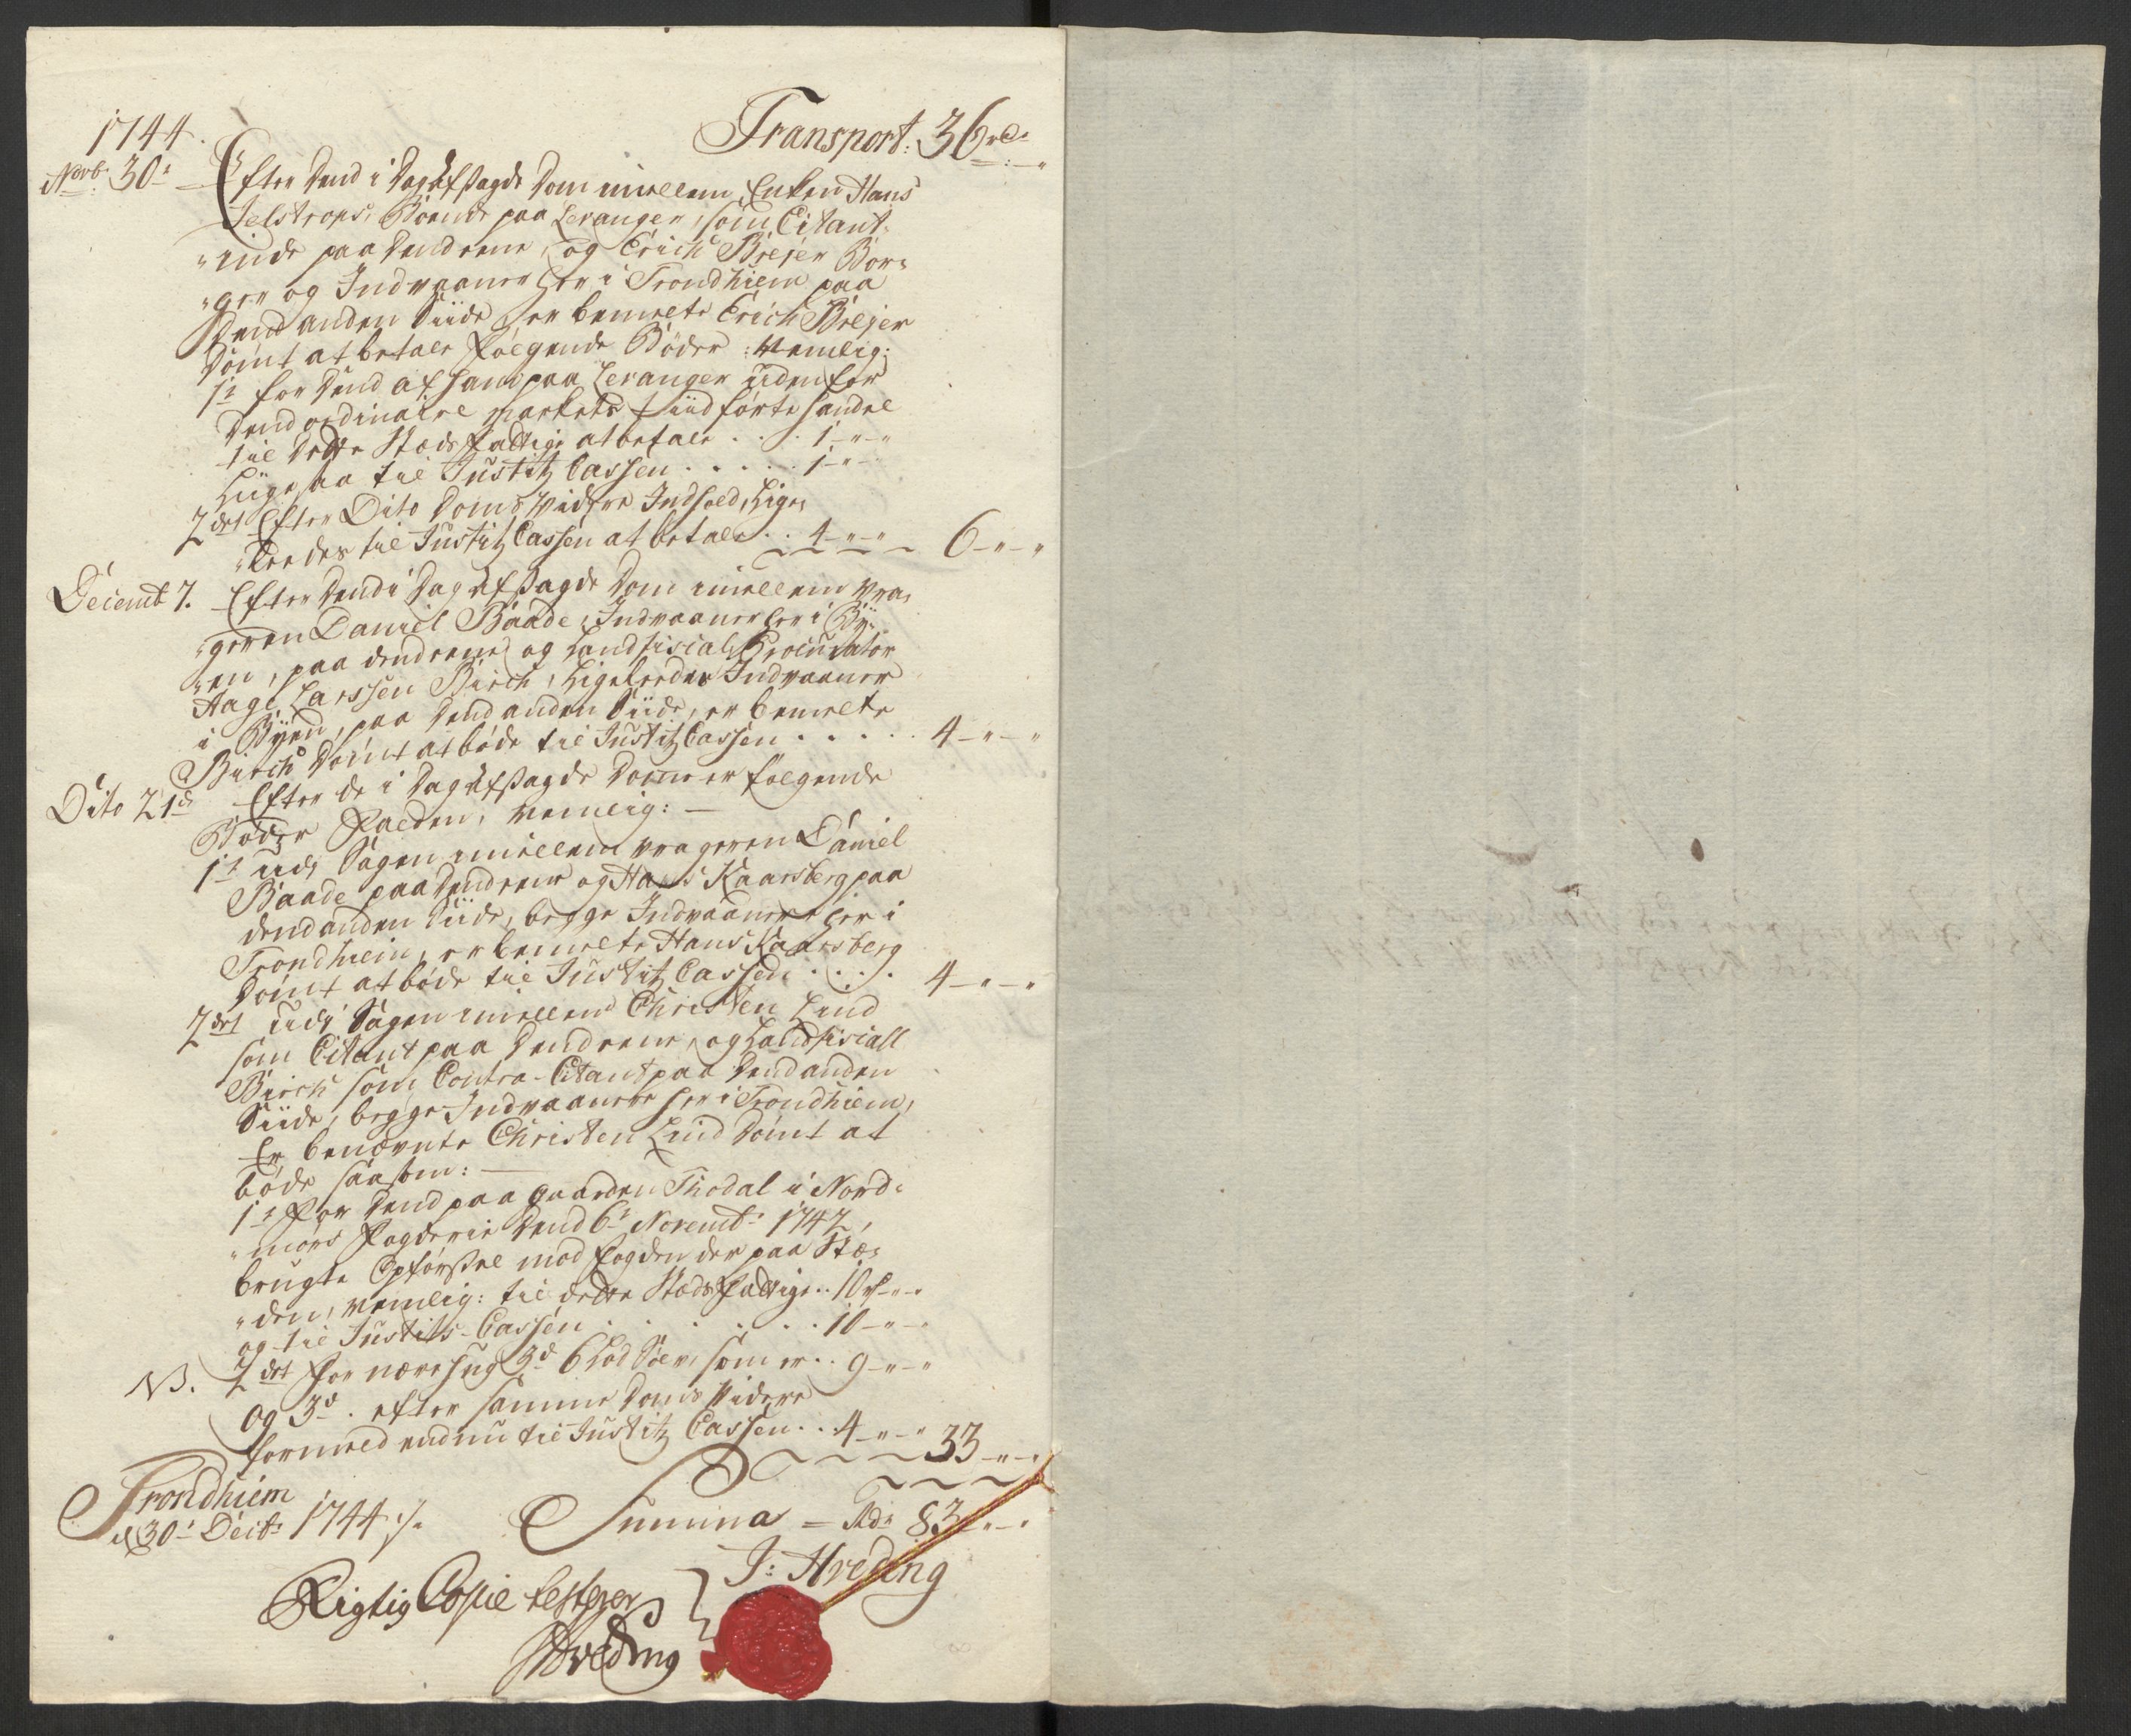 1744. Transport: 36 rd: "
Novb: 30: Efter dend i dag afsagde dom imellem Enken Hans
Jelstrops, Boende paa Levanger, som Citant-
"inde paa dend eene, og Erich Brejer Bor-
"ger og Indvaaner her i Trondhiem paa
dend anden Siide, er bemelte Erich Brejer
dømt at betale følgende Bøder: Nemlig:
1: for dend af ham paa Levanger uden for
dend ordinaire Markets tiid førte handel
til dette Stæds Fattige at betale . . . 1 - " - "
Liige saa til Justitz Cassen . . . . . 1 - " - "
2det Efter Dito doms videre Indhold, Lige-
"leedes til Justitz Cassen at betale . . 4 - " - " 6 - " - "
Decemb 7. Efter dend i dag afsagde dom imellem Vra-
"geren Daniel Baade, Indvaaner her i Bÿ-
"en, paa dend eene, og Landfiscal Procurator
Aage Larssen Birch, Ligeleedes Indvaaner
i Byen, paa dend anden Siide, er bemelte
Birch dømt at bøde til Justitz Cassen . . . . . 4 - " - "
Dito 21de Efter de i dag afsagde domme er følgende
Bøder falden, Nemlig: —
1: udi Sagen imellem vrageren Daniel
Baade paa dend eene og Hans Kaarsberg paa
dend anden Siide, begge Indvaanere her i
Trondhiem, er bemelte Hans Kaarsberg
dømt at bøde til Justitz Cassen . . . . 4 - " - "
2det udi Sagen imellem Christen Lind
som Citant paa dend eene, og Landfiscall
Birch som Contra-Citant paa dend anden
Siide, begge Indvaanere her i Trondhiem,
Er benævnte Christen Lind dømt at
bøde saasom: —
1: For dend paa gaarden Thodal i Nord-
"mørs Fogderie dend 6: Novemb: 1742,
brugte Opførsel mod fogden der paa Stæ-
"den, nemlig: til dette Stæds Fattige . . 10 rd - " - "
og til Justits-Cassen . . . . . . 10 - " - "
NB. 2det For 3de 6 Lod Sølv, som er . . 9 - " - "
Og 3d. efter samme doms videre
formeld endnu til Justitz Cassen . . 4 - " - " 33 - " - "
Trondhiem
d 30: Decb: 1744 ./. Summa = Rd: 83 - " - "
J: Hveding
Rigtig Copie testerer
JHveding